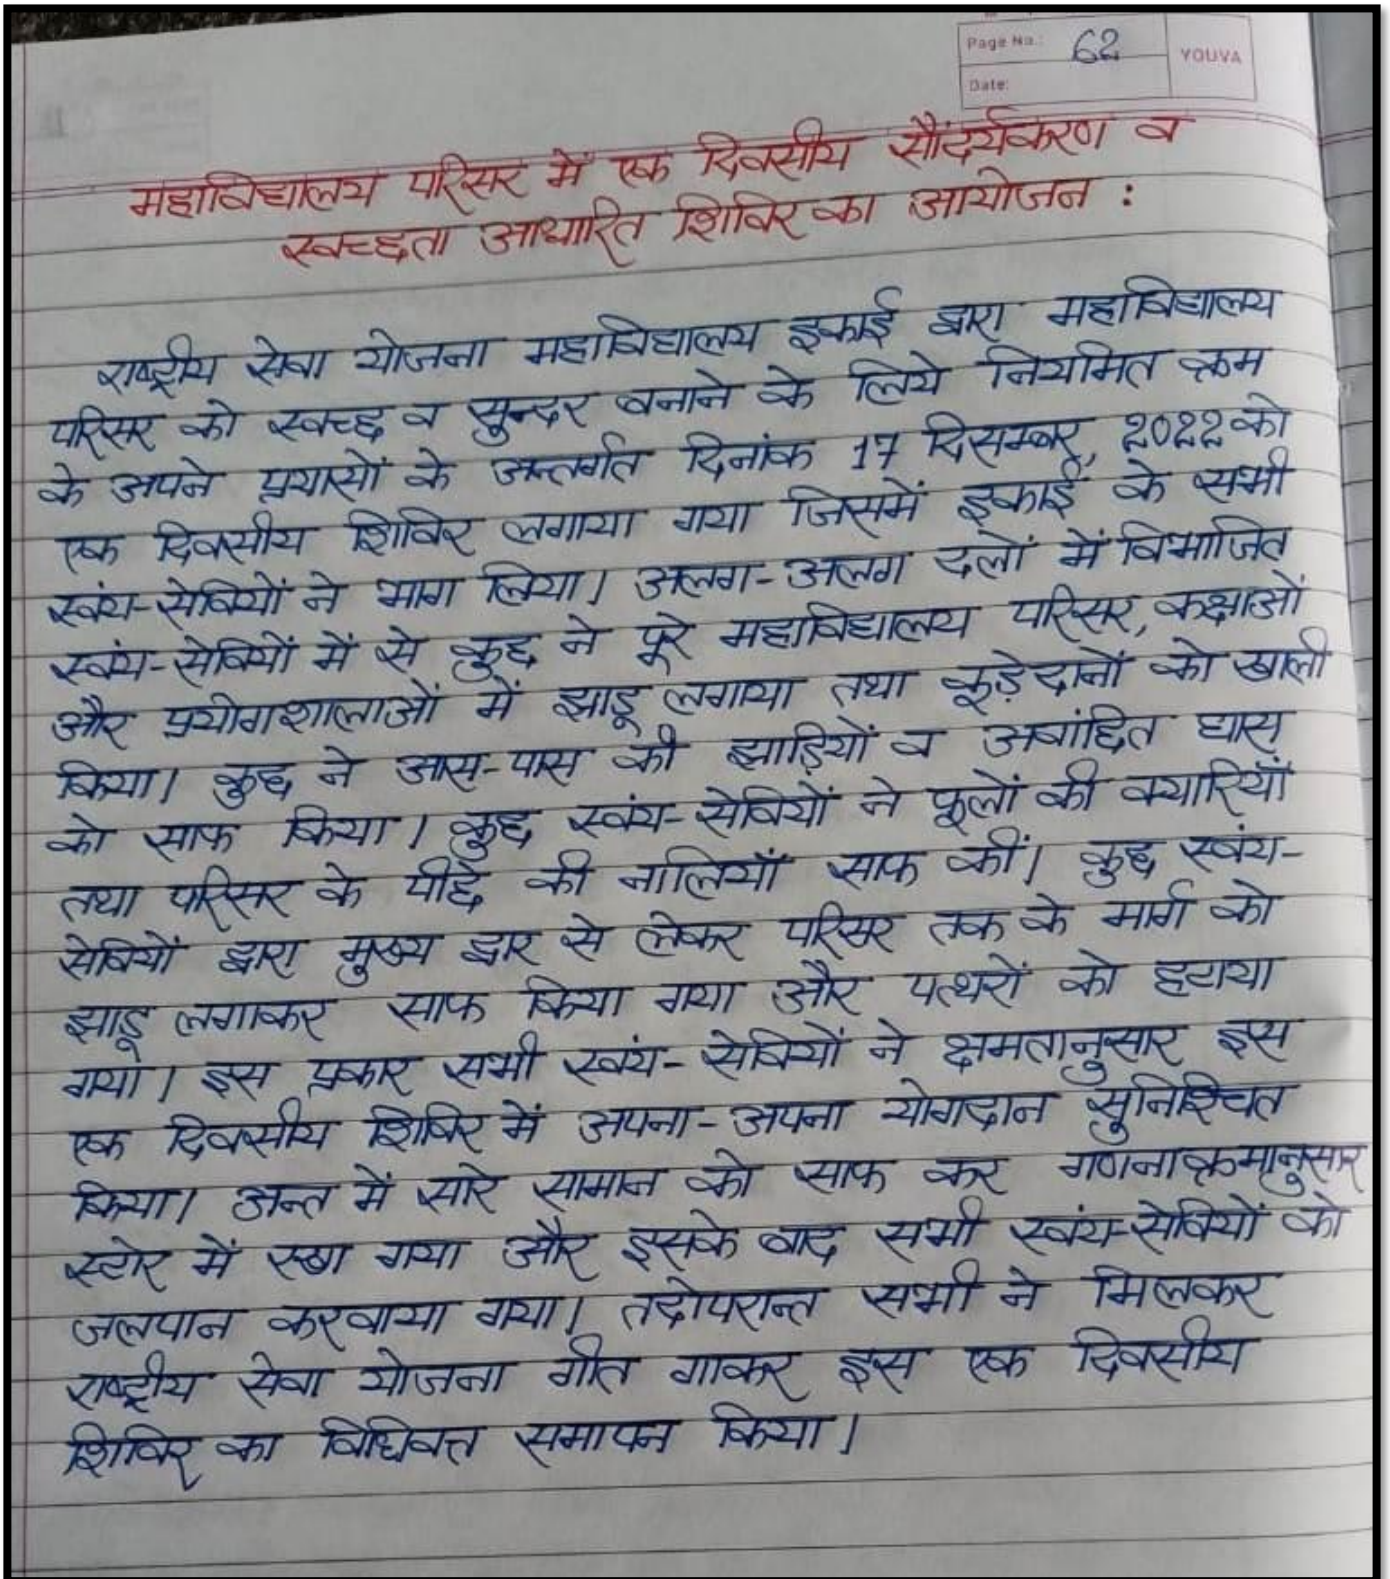 Page No.: 62
YOUVA
Date:
महाविद्यालय परिसर में एक दिवसीय सौंदर्यकरण व
स्वच्छता आधारित शिविर का आयोजन :
राष्ट्रीय सेवा योजना महाविद्यालय इकाई द्वारा महाविद्यालय
परिसर को स्वच्छ व सुन्दर बनाने के लिये नियमित क्रम
के अपने प्रयासों के अन्तर्गत दिनांक 17 दिसम्बर, 2022 को
एक दिवसीय शिविर लगाया गया जिसमें इकाई के सभी
स्वंय-सेवियों ने भाग लिया। अलग-अलग दलों में विभाजित
स्वंय-सेवियों में से कुछ ने पूरे महाविद्यालय परिसर, कक्षाओं
और प्रयोगशालाओं में झाडू लगाया तथा कूड़ेदानों को खाली
किया। कुछ ने आस-पास की झाड़ियों व अवांछित घास
को साफ किया। कुछ स्वंय-सेवियों ने फूलों की क्यारियाँ
तथा परिसर के पीछे की नालियाँ साफ कीं। कुछ स्वंय-
सेवियों द्वारा मुख्य द्वार से लेकर परिसर तक के मार्ग को
झाडू लगाकर साफ किया गया और पत्थरों को हटाया
गया। इस प्रकार सभी स्वंय-सेवियों ने क्षमतानुसार इस
एक दिवसीय शिविर में अपना-अपना योगदान सुनिश्चित
किया। अन्त में सारे सामान को साफ कर गणनाक्रमानुसार
स्टोर में रखा गया और इसके बाद सभी स्वंय-सेवियों को
जलपान करवाया गया। तदोपरान्त सभी ने मिलकर
राष्ट्रीय सेवा योजना गीत गाकर इस एक दिवसीय
शिविर का विधिवत्त समापन किया।